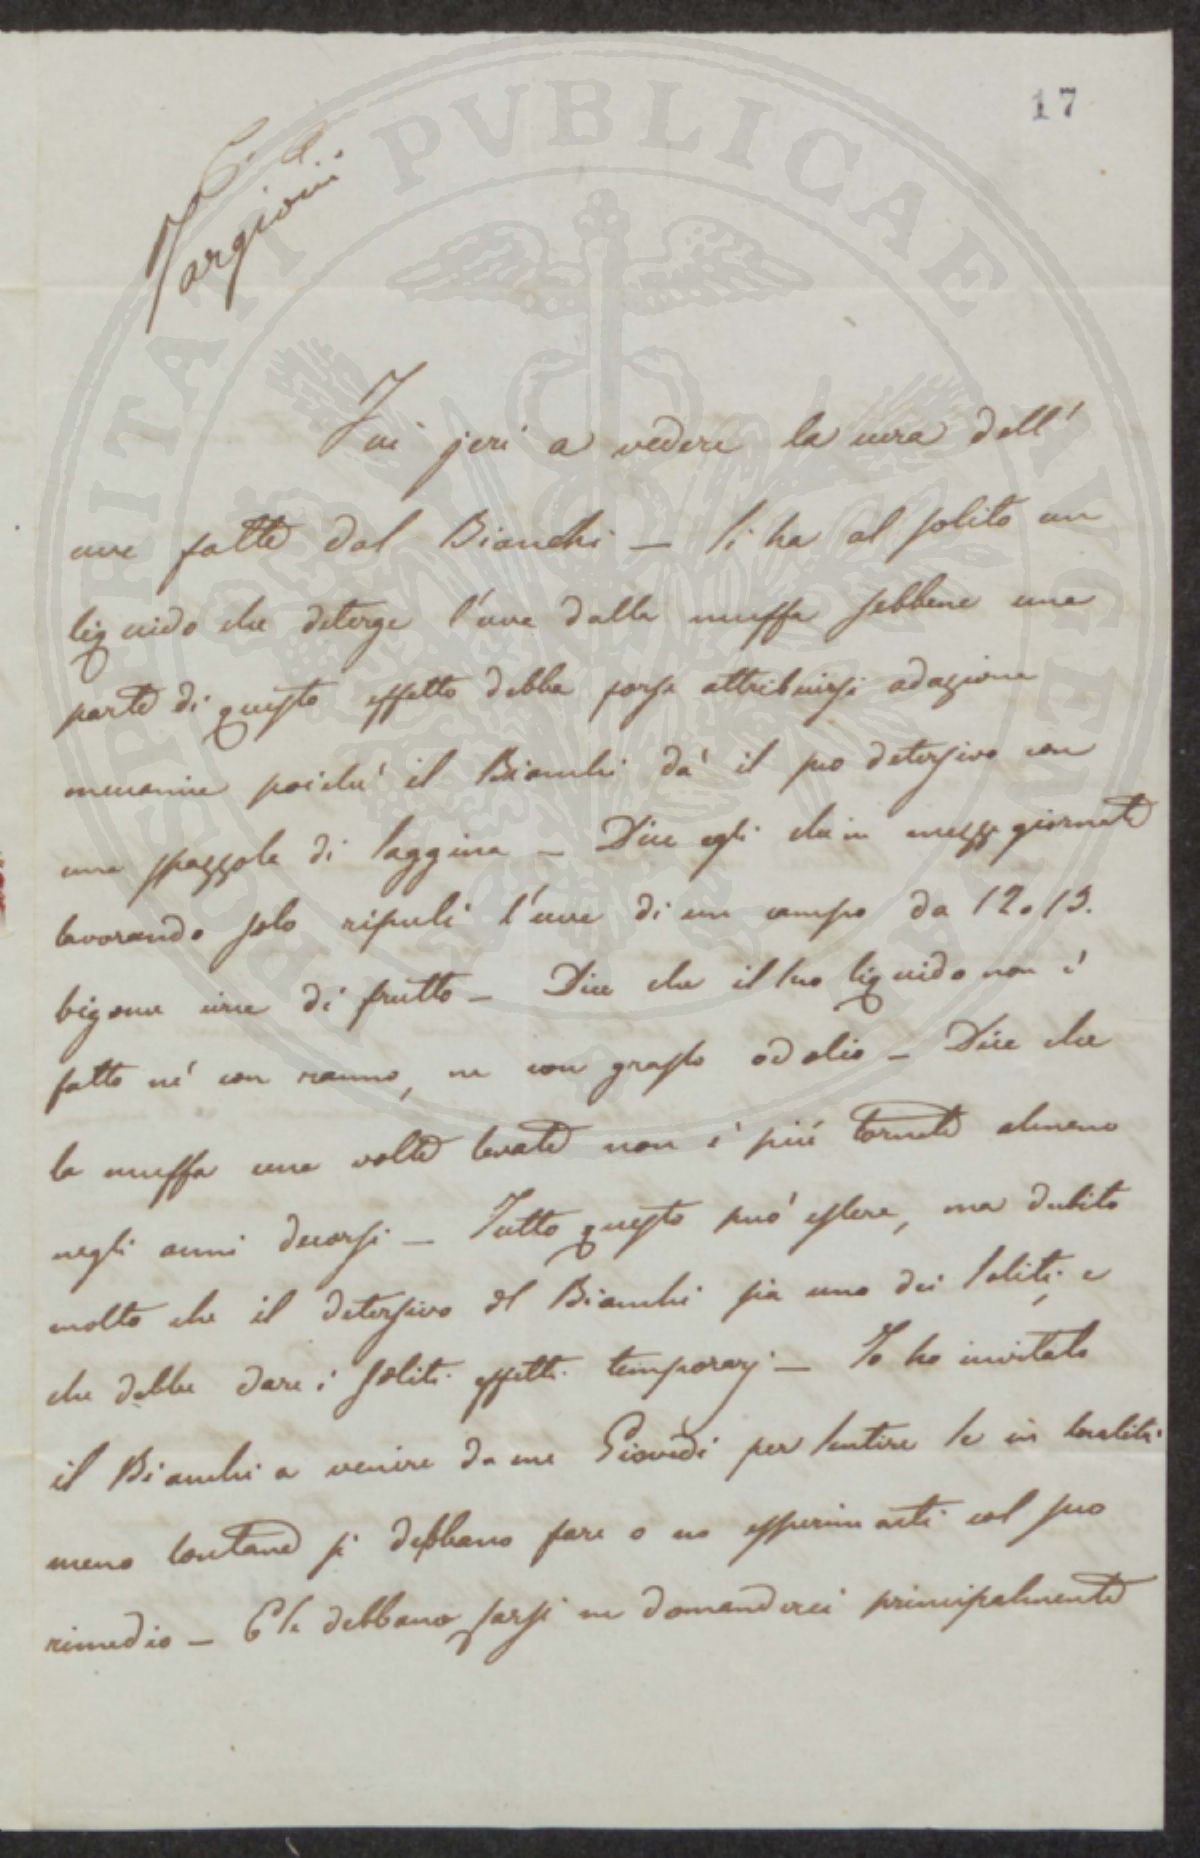 17
C. A.
Targioni
Fui jeri a vedere la cura dell'
uve fatta dal Bianchi — Si ha al solito un
liquido che deterge l'uva dalla muffa sebbene una
parte di questo effetto debba forse attribuirsi ad azione
meccanica poiché il Bianchi dà il suo detersivo con
una spazzola di saggina — Dice egli che in mezza giornata
lavorando solo ripulì l'uva di un campo da 12 o 13.
bigonce circa di frutto — Dice che il suo liquido non è
fatto né con ranno, ne con grasso od olio — Dice che
la muffa una volta levata non è più tornata almeno
negli anni decorsi — Tutto questo può essere, ma dubito
molto che il detersivo del Bianchi sia uno dei soliti, e
che debba dare i soliti effetti temporarj — Io ho invitato
il Bianchi a venire da me Giovedì per sentire se in località
meno lontana si debbano fare o no esperimenti col suo
rimedio — E se debbano farsi ne domanderei principalmente
PROSPERITATI PVBLICAE AVGENDAE